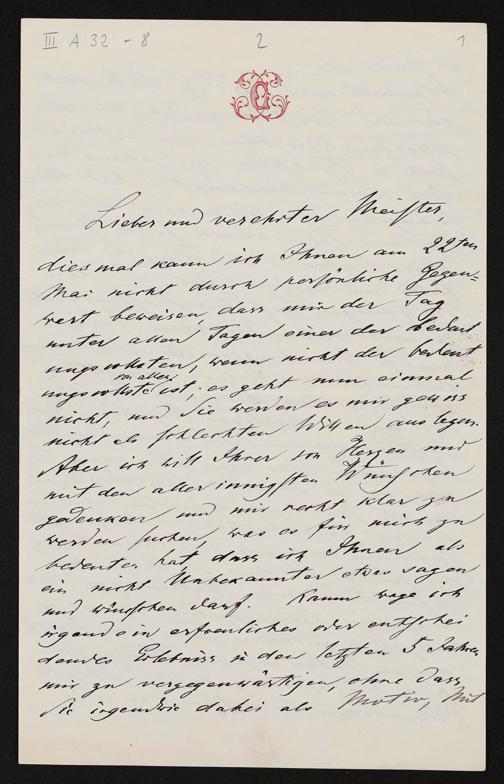 III A 32 - 8 2 1
Lieber und verehrter Meister,
diesmal kann ich Ihnen am 22ten
Mai nicht durch persönliche Gegen=
wart beweisen, dass mir der Tag
unter allen Tagen einer der bedeut
ungsvollsten, wenn nicht der bedeut
ungsvollste von allen ist; es geht nun einmal
nicht, und Sie werden es mir gewiss
nicht als schlechten Willen auslegen.
Aber ich will Ihrer von Herzen und
mit den allerinnigsten Wünschen
gedenken und mir recht klar zu
werden suchen, was es für mich zu
bedeuten hat, dass ich Ihnen als
ein nicht Unbekannter etwas sagen
und wünschen darf. Kaum wage ich
irgend ein erfreuliches oder entschei
dendes Erlebniss in den letzten 5 Jahren
mir zu vergegenwärtigen, ohne dass
Sie irgendwie dabei als Motiv, Mit